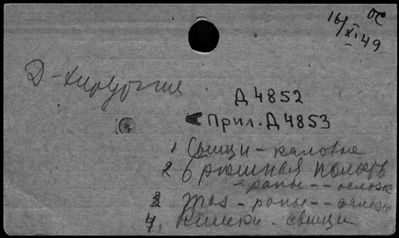 ОС
16/XI 49
Д-хирургия
Д 4852
Прил. Д 4853
1 Свищи - каловые
2 брюшная полость
- раны -- ослож
3 таз - раны -- ослож
4. кишки - свищи